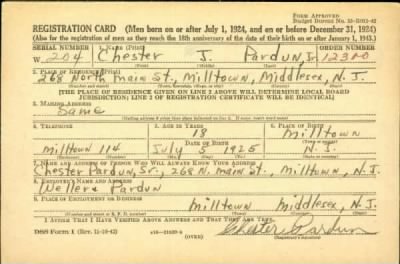 FORM APPROVED
REGISTRATION CARD (Men born on or after July 1, 1924, and on or before December 31, 1924)
(Also for the registration of men as they reach the 18th anniversary of the date of their birth on or after January 1, 1943.)
SERIAL NUMBER 1. NAME (Print) ORDER NUMBER
W 204 Chester J. Pardun, Jr. 12300
2. PLACE OF RESIDENCE (Print)
268 North Main St., Milltown, Middlesex, N. J.
[THE PLACE OF RESIDENCE GIVEN ON LINE 2 ABOVE WILL DETERMINE LOCAL BOARD
JURISDICTION; LINE 2 OF REGISTRATION CERTIFICATE WILL BE IDENTICAL]
3. MAILING ADDRESS
Same
4. TELEPHONE 5. AGE IN YEARS 6. PLACE OF BIRTH
18 Milltown
DATE OF BIRTH
Milltown 114 July 5 1925 N. J.
7. NAME AND ADDRESS OF PERSON WHO WILL ALWAYS KNOW YOUR ADDRESS
Chester Pardun, Sr., 268 N. Main St., Milltown, N. J.
8. EMPLOYER'S NAME AND ADDRESS
Weller & Pardun
9. PLACE OF EMPLOYMENT OR BUSINESS
Milltown Middlesex, N. J.
I AFFIRM THAT I HAVE VERIFIED ABOVE ANSWERS AND THAT THEY ARE TRUE.
DSS Form 1 (OVER) Chester Pardun